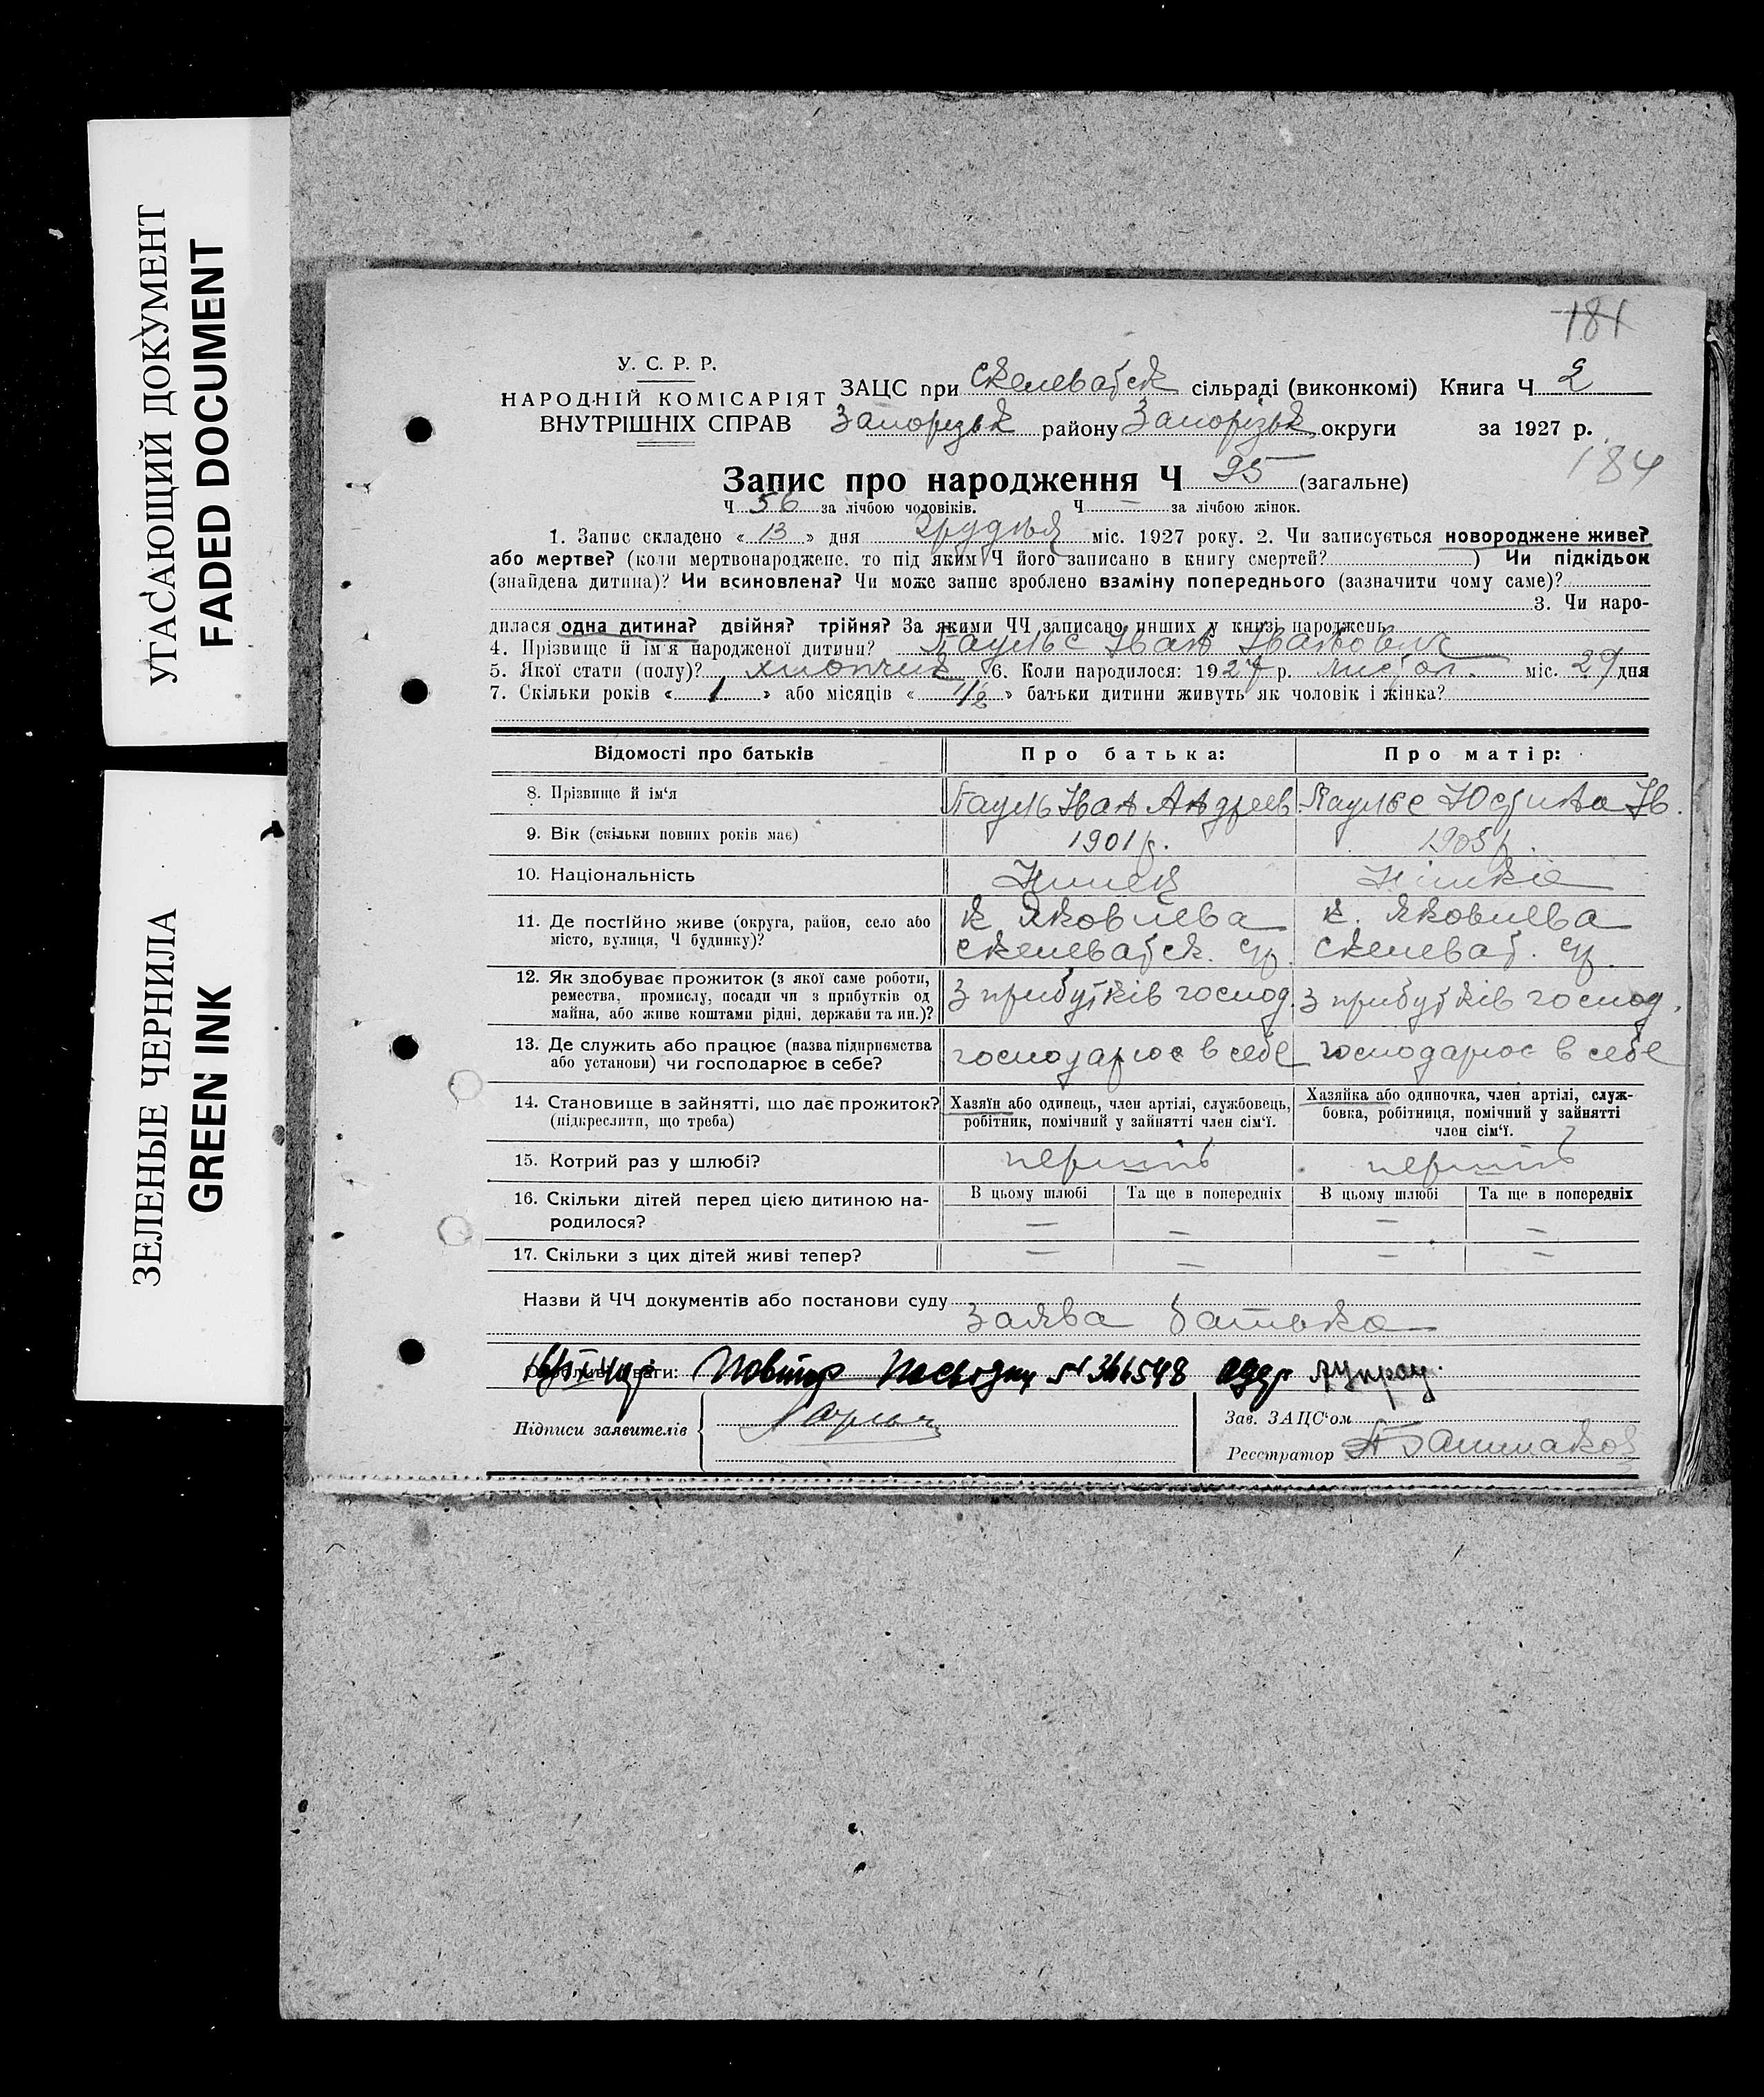 УГАСАЮЩИЙ ДОКУМЕНТ
FADED DOCUMENT
ЗЕЛЕНЫЕ ЧЕРНИЛА
GREEN INK
181
У. С. Р. Р.
НАРОДНІЙ КОМІСАРІЯТ
ВНУТРІШНІХ СПРАВ
ЗАЦС при Скелеватск сільраді (виконкомі) Книга Ч 2
Запорізьк району Запорізьк округи за 1927 р.
184
Запис про народження Ч 95 (загальне)
Ч 56 за лічбою чоловіків. Ч — за лічбою жінок.
1. Запис складено « 13 » дня Грудня міс. 1927 року. 2. Чи записується новороджене живе?
або мертве? (коли мертвонароджене, то під яким Ч його записано в книгу смертей? ) Чи підкідьок
(знайдена дитина)? Чи всиновлена? Чи може запис зроблено взаміну попереднього (зазначити чому саме)?
3. Чи наро-
дилася одна дитина? двійня? трійня? За якими ЧЧ записано инших у книзі народжень
4. Прізвище й ім'я народженої дитини? Паульс Іван Іванович
5. Якої стати (полу)? хлопчик 6. Коли народилося: 1927 р. листоп. міс. 29 дня
7. Скільки років « 1 » або місяців « 1/2 » батьки дитини живуть як чоловік і жінка?
Відомості про батьків Про батька: Про матір:
8. Прізвище й ім'я Пауль Іван Андреев Паульс Юстина Ів.
9. Вік (скільки повних років має) 1901 р. 1905 р.
10. Національність Німец Німкіе
11. Де постійно живе (округа, район, село або
місто, вулиця, Ч будинку)?
к Яковлева
Скелеватск.
к. Яковлева
Скелеват.
12. Як здобуває прожиток (з якої саме роботи,
ремества, промислу, посади чи з прибутків од
майна, або живе коштами рідні, держави та ин.)?
з прибутків господ. з прибутків господ.
13. Де служить або працює (назва підприємства
або установи) чи господарює в себе?
господарює в себе господарює в себе
14. Становище в зайнятті, що дає прожиток?
(підкреслити, що треба)
Хазяїн або одинець, член артілі, службовець,
робітник, помічний у зайнятті член сім'ї.
Хазяйка або одиночка, член артілі, служ-
бовка, робітниця, помічний у зайнятті
член сім'ї.
15. Котрий раз у шлюбі? перший перший
16. Скільки дітей перед цією дитиною на-
родилося?
В цьому шлюбі Та ще в попередніх В цьому шлюбі Та ще в попередніх
— — — —
17. Скільки з цих дітей живі тепер? — — — —
Назви й ЧЧ документів або постанови суду
заява батька
№ 366548
Підписи заявителів
Зав. ЗАЦС'ом
Реєстратор